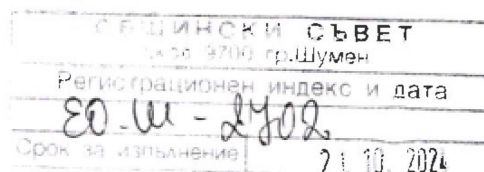 ОБЩИНСКИ СЪВЕТ
код 9700 гр.Шумен
Регистрационен индекс и дата
ЕО-Ш-2702
Срок за изпълнение 21.10.2024